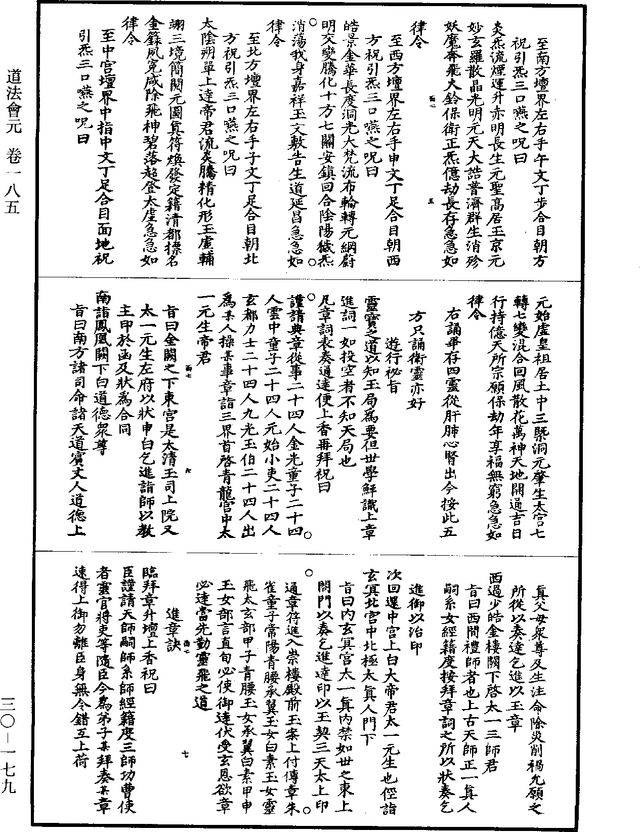 道法會元　卷一八五
至南方壇界左右手午文丁步合目朝方
祝引炁三口嚥之呪曰
炎炁流煙運升赤明長生元聖高居玉京元
妙玄羅散晶光明元天大誥普濟群生消殄
妖魔奔飛大鈴保衛正炁億劫長存急急如
律令
至西方壇界左右手申文丁足合目朝西
方祝引炁三口嚥之呪曰
皓景金華長庚洞光大梵流布輪轉元綱蔚
明交變騰化十方七關安鎮回合陰陽穢炁
消蕩我身嘉祥玉文敷告生道延昌急急如
律令
至北方壇界左右手子文丁足合目朝北
方祝引炁三口嚥之呪曰
太陰朔單上達帝君流炎騰精化形玉虛輔
翊三境簡閱元圖真符煥發定籍清都搽名
金籙風寃咸除飛神碧落超登太虛急急如
律令
至中宮壇界中指中文丁足合目面地祝
引炁三口嚥之呪曰
元始虛皇祖居土中三槩洞元肇生太宮七
轉七變混合回風散花萬神天地開通吉日
行持億天所宗願保劫年享福無窮急急如
律令
右誦畢存四靈從肝肺心腎出今按此五
方只誦衛靈亦好
遊行祕旨
靈寶之道以知玉局為要但世學鮮識上章
進詞一如投空者不知天局也
凡章詞表奏通達便上香再拜祝曰
謹請典章從事二十四人金光童子二十四
人雲中童子二十四人元始小吏二十四人
玄都力士二十四人九光玉伯二十四人出
為某人操某事章詣三界首啓青龍宮中太
一元生帝君
旨曰金闕之下東宮是太清玉司上院又
太一元生左府以狀申白乞進詣師以教
主甲於函及狀為合同
南詣鳳凰闕下白道德衆尊
旨曰南方諸司命諸天道賓丈人道德上
真父母衆尊及生注命除災削禍九願之
所從以奏達乞進以玉章
西過少皓金樓闕下啓太一三師君
旨曰西間禮師者也上古天師正一真人
嗣系女經籍度按拜章詞之所以狀奏乞
進御以治印
次回還中宮上白大帝君太一元生也徑詣
玄真北宮中北極太真人門下
旨曰內玄真宮太一真內禁如世之東上
閤門以奏乞進達印以玉契三天太上印
通章符進入崇樓殿前玉案上付傳章朱
雀童子常陽青腰承翼玉女白素玉女靈
飛太玄部甲子青腰玉女承翼白素甲申
玉女部言直句必使御達伏受玄恩欲章
必達當先勤靈飛之道
進章訣
臨拜章升壇上香祝曰
臣謹請天師嗣師系師經籍度三師功曹使
者靈官將吏等隨臣今為弟子某拜奏某章
速得上御勿離臣身無令錯互上荷
三〇－一七九